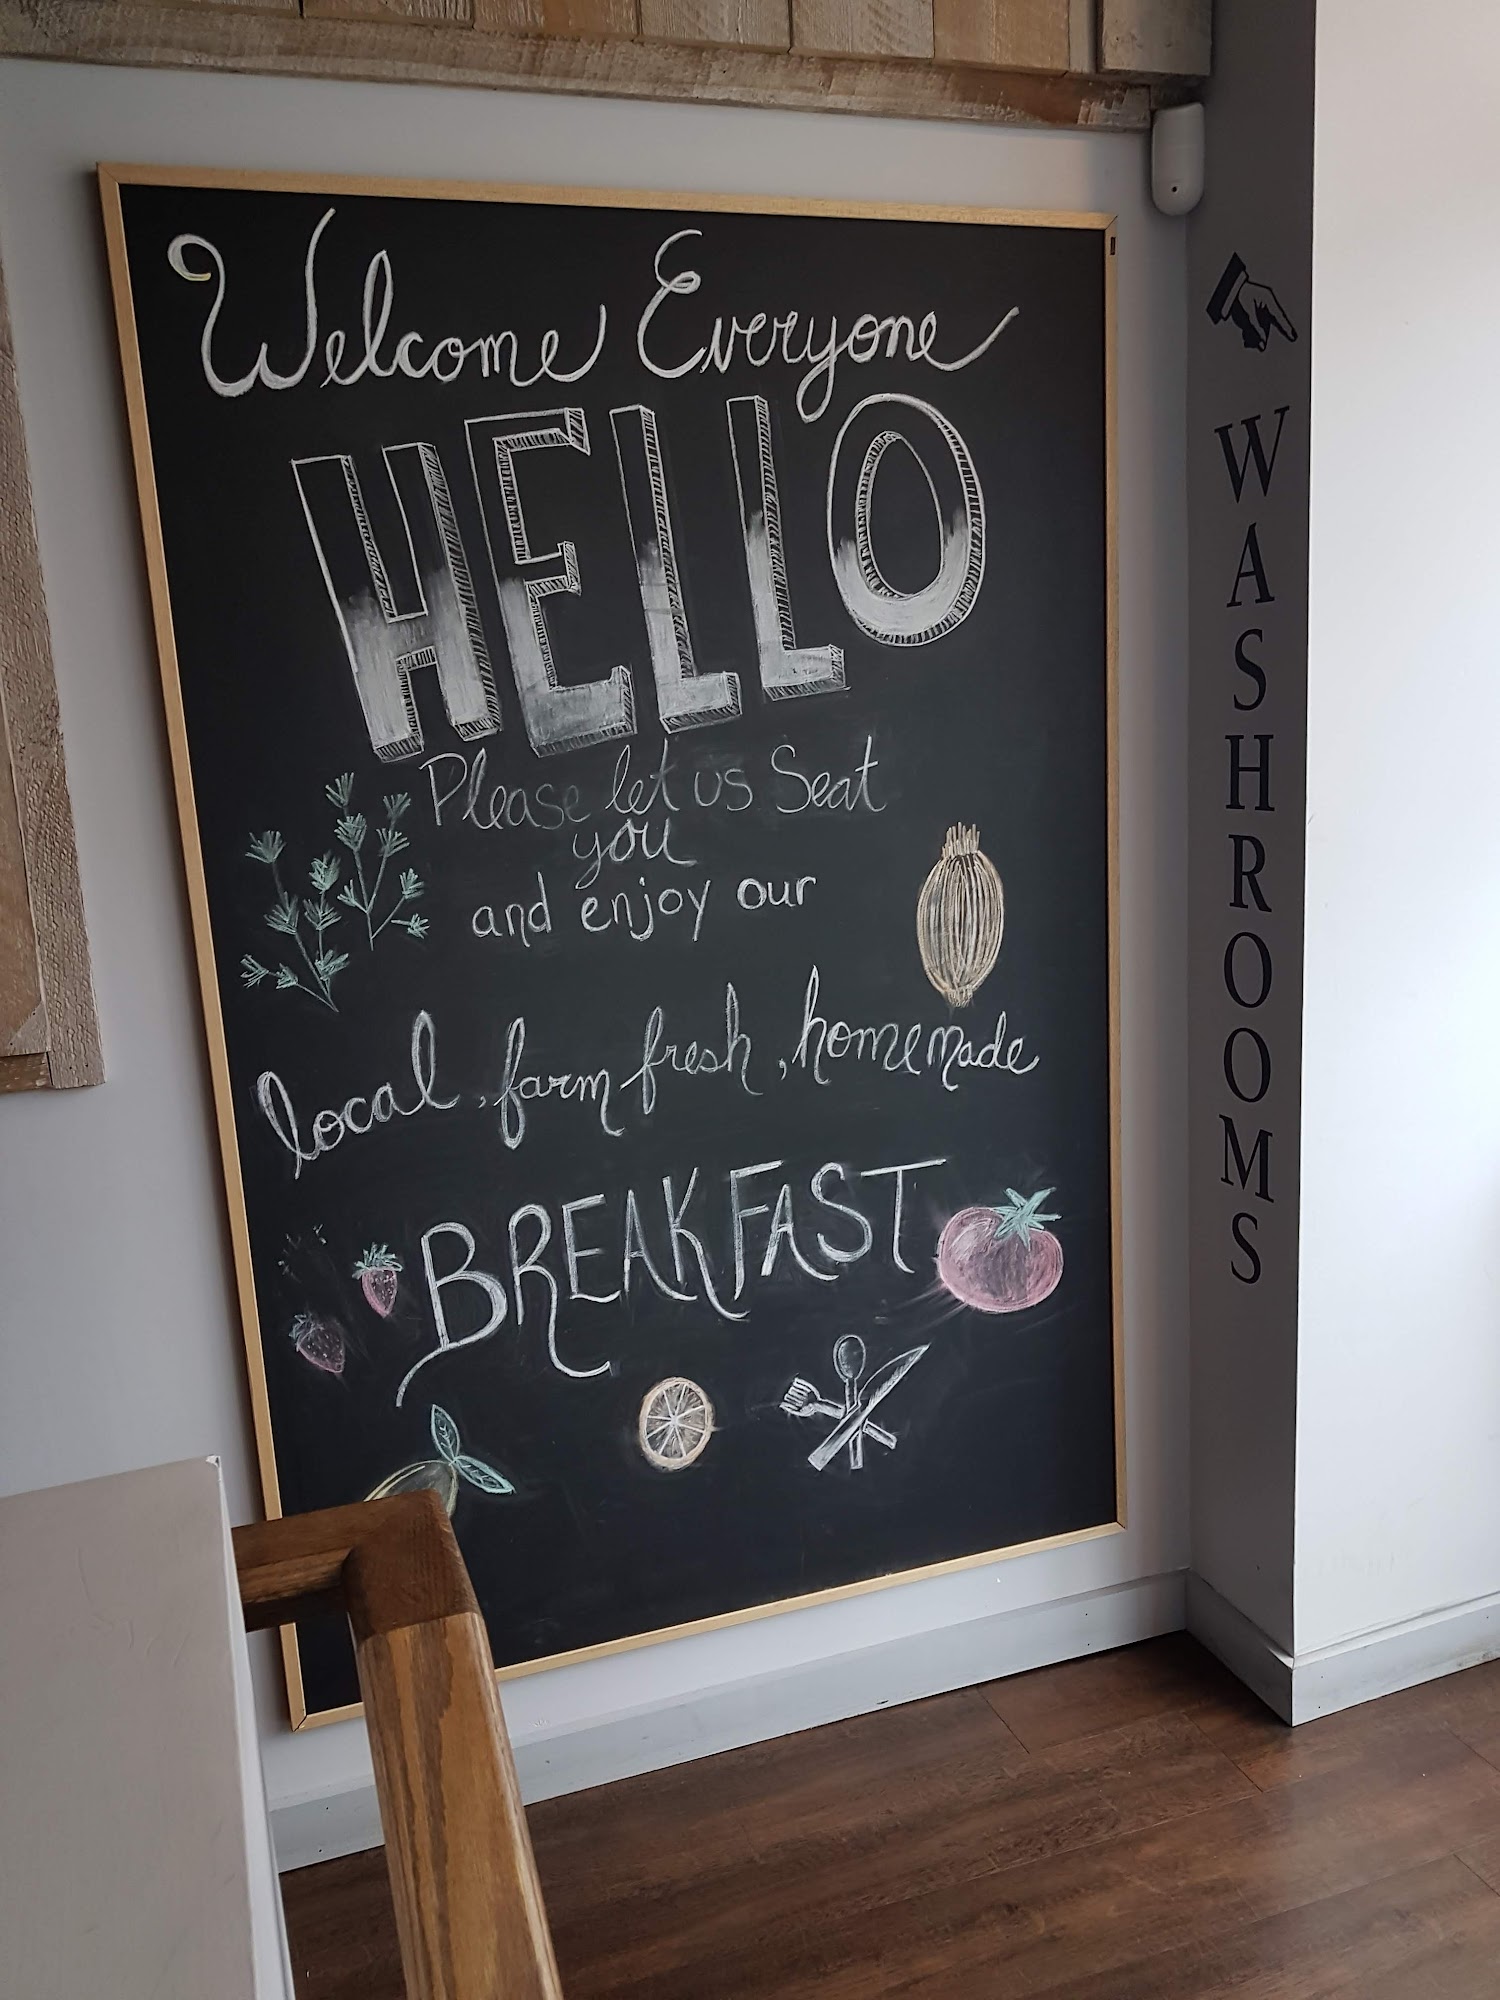 Welcome Everyone
HELLO
Please let us Seat
you
and enjoy our
local, farm fresh, homemade
BREAKFAST
WASHROOMS